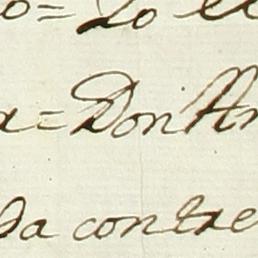 o= Lo
a= Don An
da contre